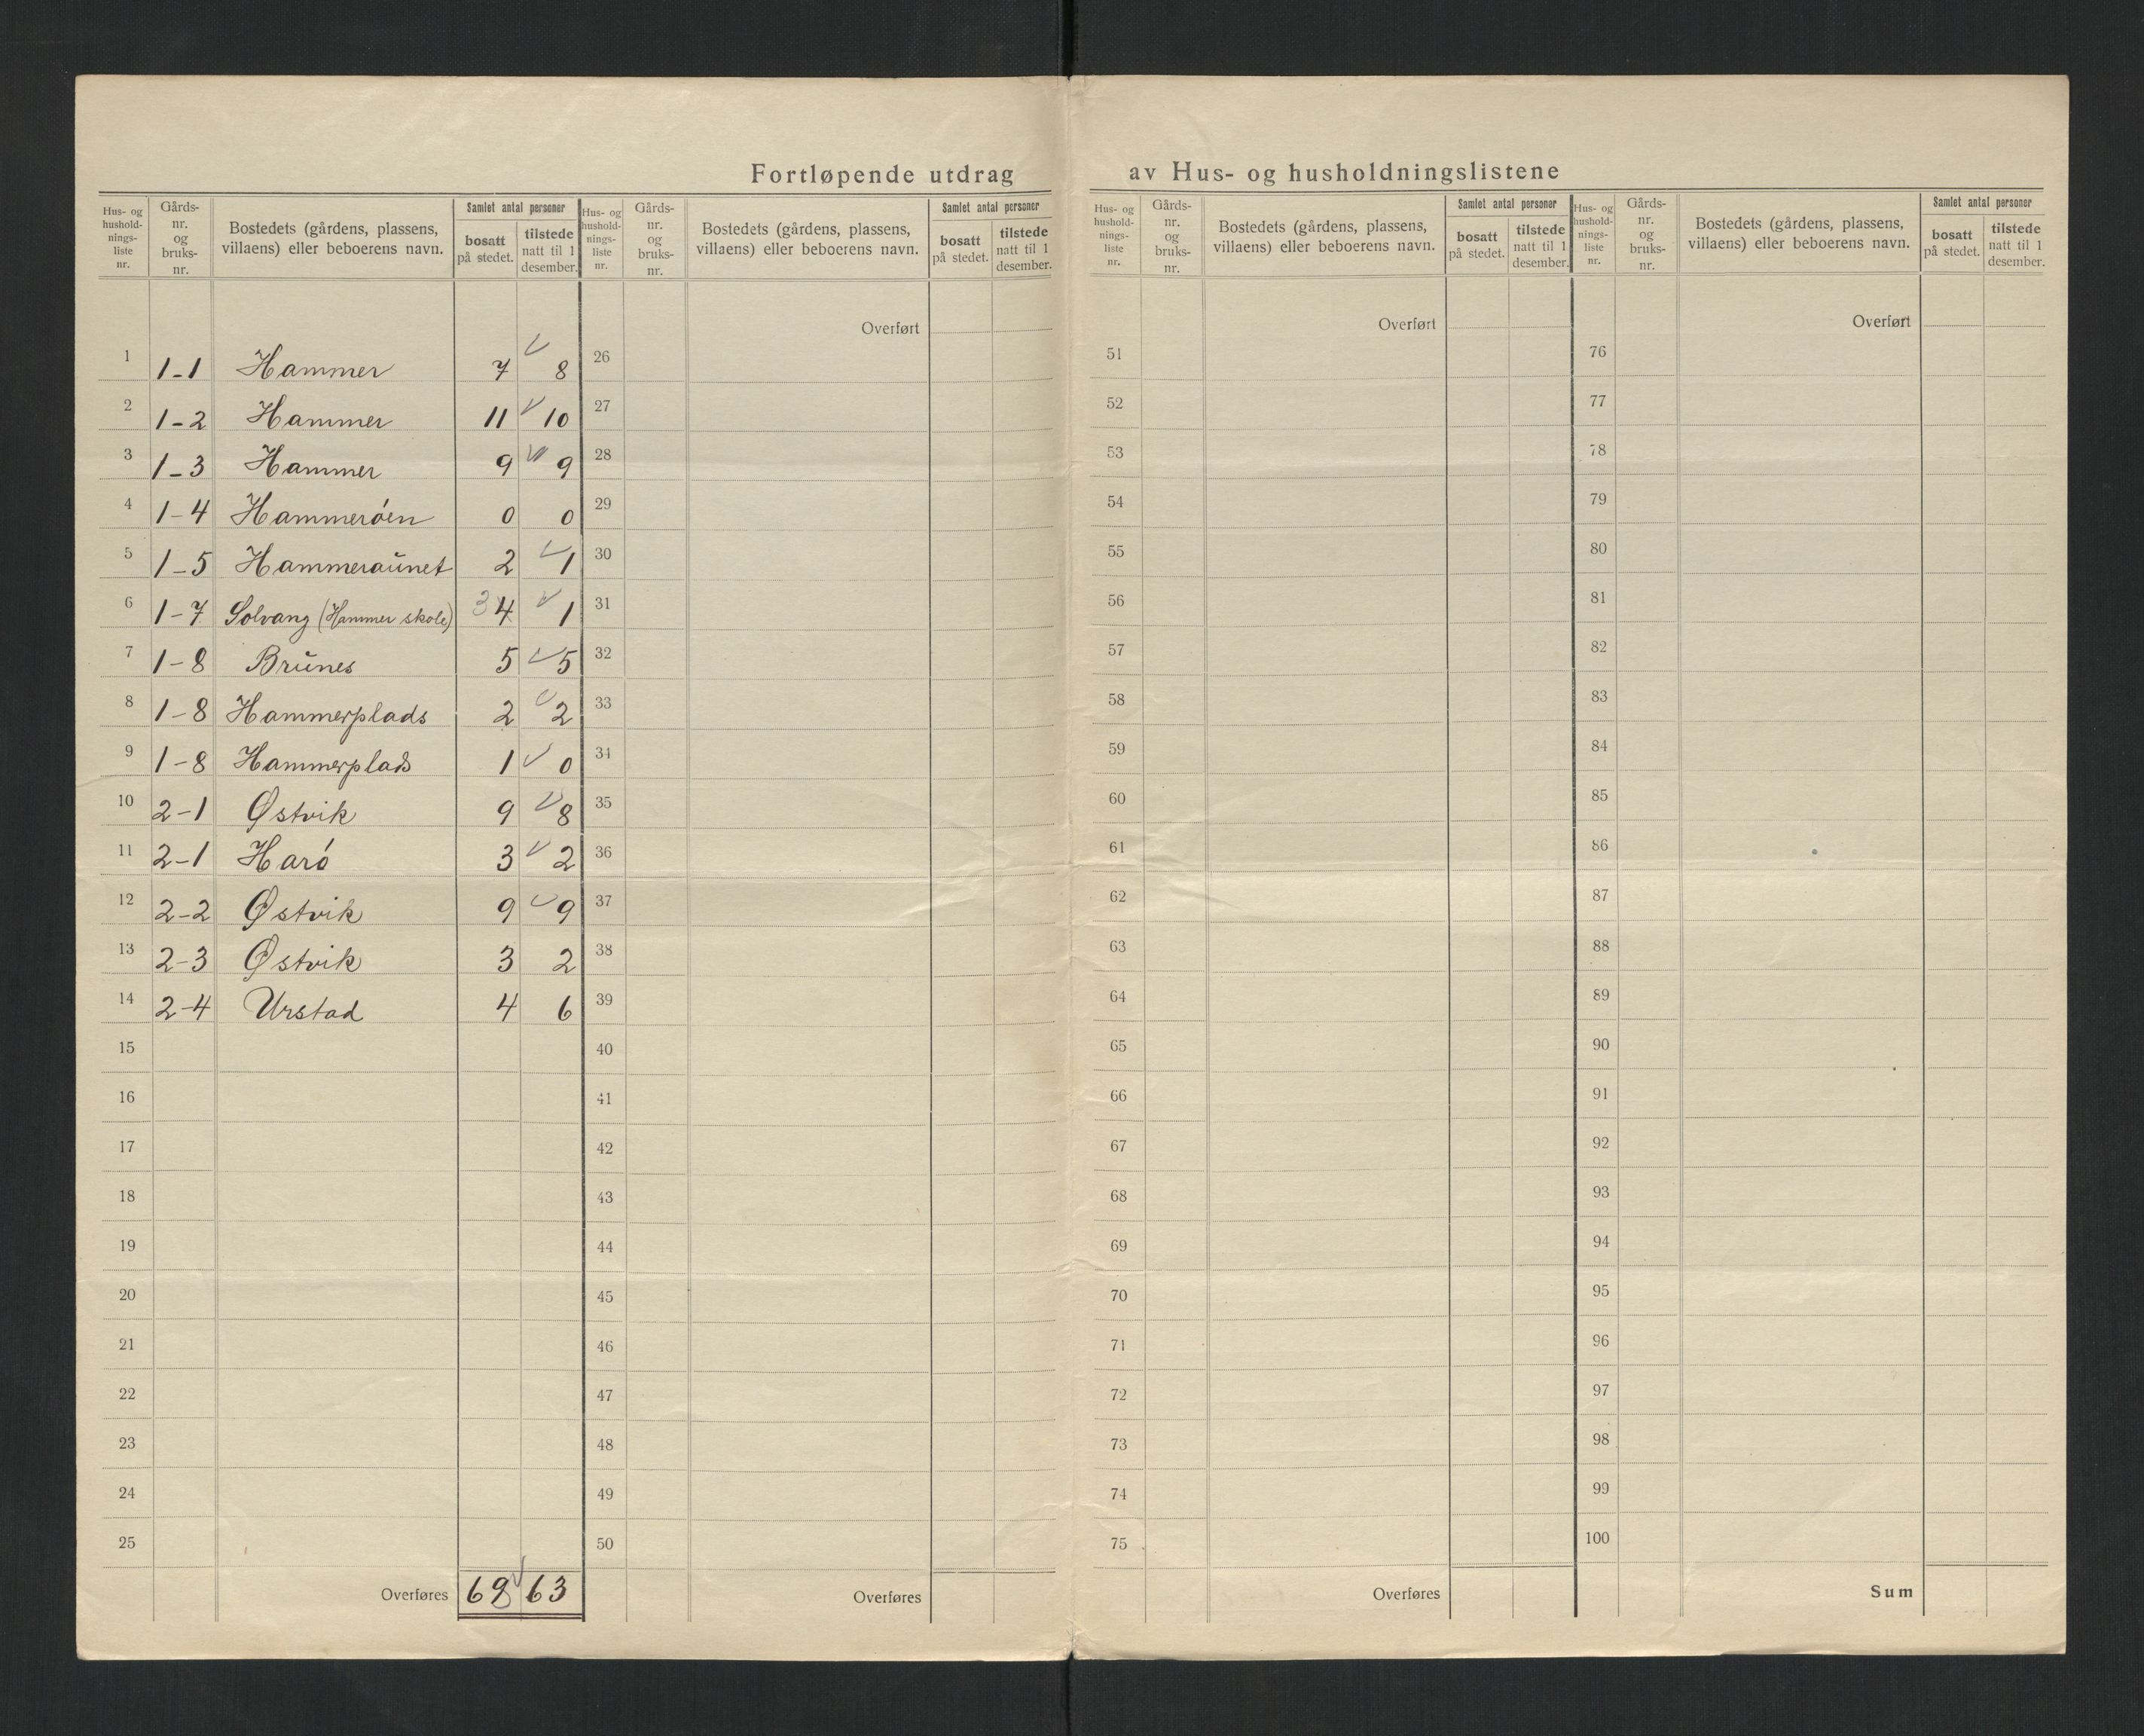 Fortløpende utdrag av Hus- og husholdningslistene
Hus- og husholdnings-liste nr. Gårds-nr. og bruks-nr. Bostedets (gårdens, plassens, villaens) eller beboerens navn. Samlet antal personer bosatt på stedet. tilstede natt til 1 desember.
1 1-1 Hammer 7 8
2 1-2 Hammer 11 10
3 1-3 Hammer 9 9
4 1-4 Hammerøen 0 0
5 1-5 Hammeraunet 2 1
6 1-7 Solvang (Hammer skole) 3 4 1
7 1-8 Brunes 5 5
8 1-8 Hammerplads 2 2
9 1-8 Hammerplads 1 0
10 2-1 Østvik 9 8
11 2-1 Harö 3 2
12 2-2 Østvik 9 9
13 2-3 Østvik 3 2
14 2-4 Urstad 4 6
15
16
17
18
19
20
21
22
23
24
25
Overføres 69 63
Hus- og husholdnings-liste nr. Gårds-nr. og bruks-nr. Bostedets (gårdens, plassens, villaens) eller beboerens navn. Samlet antal personer bosatt på stedet. tilstede natt til 1 desember.
Overført
26
27
28
29
30
31
32
33
34
35
36
37
38
39
40
41
42
43
44
45
46
47
48
49
50
Overføres
Hus- og husholdnings-liste nr. Gårds-nr. og bruks-nr. Bostedets (gårdens, plassens, villaens) eller beboerens navn. Samlet antal personer bosatt på stedet. tilstede natt til 1 desember.
Overført
51
52
53
54
55
56
57
58
59
60
61
62
63
64
65
66
67
68
69
70
71
72
73
74
75
Overføres
Hus- og husholdnings-liste nr. Gårds-nr. og bruks-nr. Bostedets (gårdens, plassens, villaens) eller beboerens navn. Samlet antal personer bosatt på stedet. tilstede natt til 1 desember.
Overført
76
77
78
79
80
81
82
83
84
85
86
87
88
89
90
91
92
93
94
95
96
97
98
99
100
Sum